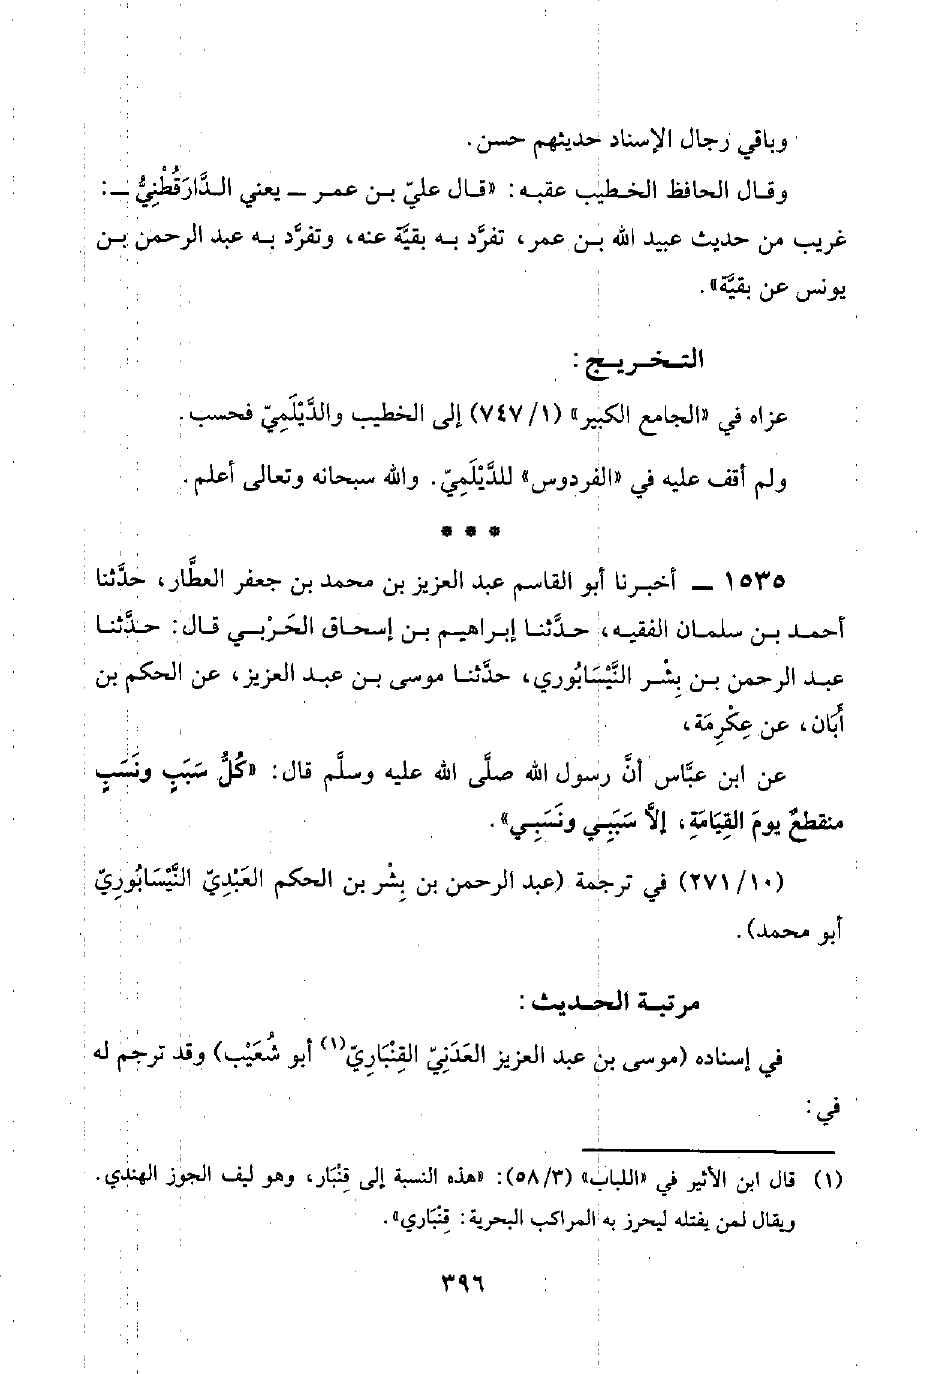 وباقي رجال الإسناد حديثهم حسن.
وقال الحافظ الخطيب عقبه: «قال عليّ بن عمر ــ يعني الدَّارَقُطْنِيُّ ــ:
غريب من حديث عبيد الله بن عمر، تفرَّد به بقيَّة عنه، وتفرَّد به عبد الرحمن بن
يونس عن بقيَّة».
التخريج:
عزاه في «الجامع الكبير» (١/ ٧٤٧) إلى الخطيب والدَّيْلَمِيّ فحسب.
ولم أقف عليه في «الفردوس» للدَّيْلَمِيّ. والله سبحانه وتعالى أعلم.
* * *
١٥٣٥ ــ أخبرنا أبو القاسم عبد العزيز بن محمد بن جعفر العطَّار، حدَّثنا
أحمد بن سلمان الفقيه، حدَّثنا إبراهيم بن إسحاق الحَرْبي قال: حدَّثنا
عبد الرحمن بن بِشْر النَّيْسَابُوري، حدَّثنا موسى بن عبد العزيز، عن الحكم بن
أَبَان، عن عِكْرِمَة،
عن ابن عبَّاس أنَّ رسول الله صلَّى الله عليه وسلَّم قال: «كُلُّ سَبَبٍ ونَسَبٍ
منقطعٌ يومَ القِيَامَةِ، إلاَّ سَبَبِي ونَسَبِي».
(١٠/ ٢٧١) في ترجمة (عبد الرحمن بن بِشْر بن الحكم العَبْدِيّ النَّيْسَابُوريّ
أبو محمد).
مرتبة الحديث:
في إسناده (موسى بن عبد العزيز العَدَنِيّ القِنْبَارِيّ(١) أبو شُعَيْب) وقد ترجم له
في:
(١) قال ابن الأثير في «اللباب» (٣/ ٥٨): «هذه النسبة إلى قِنْبَار، وهو ليف الجوز الهندي.
ويقال لمن يفتله ليحرز به المراكب البحرية: قِنْبَاري».
٣٩٦